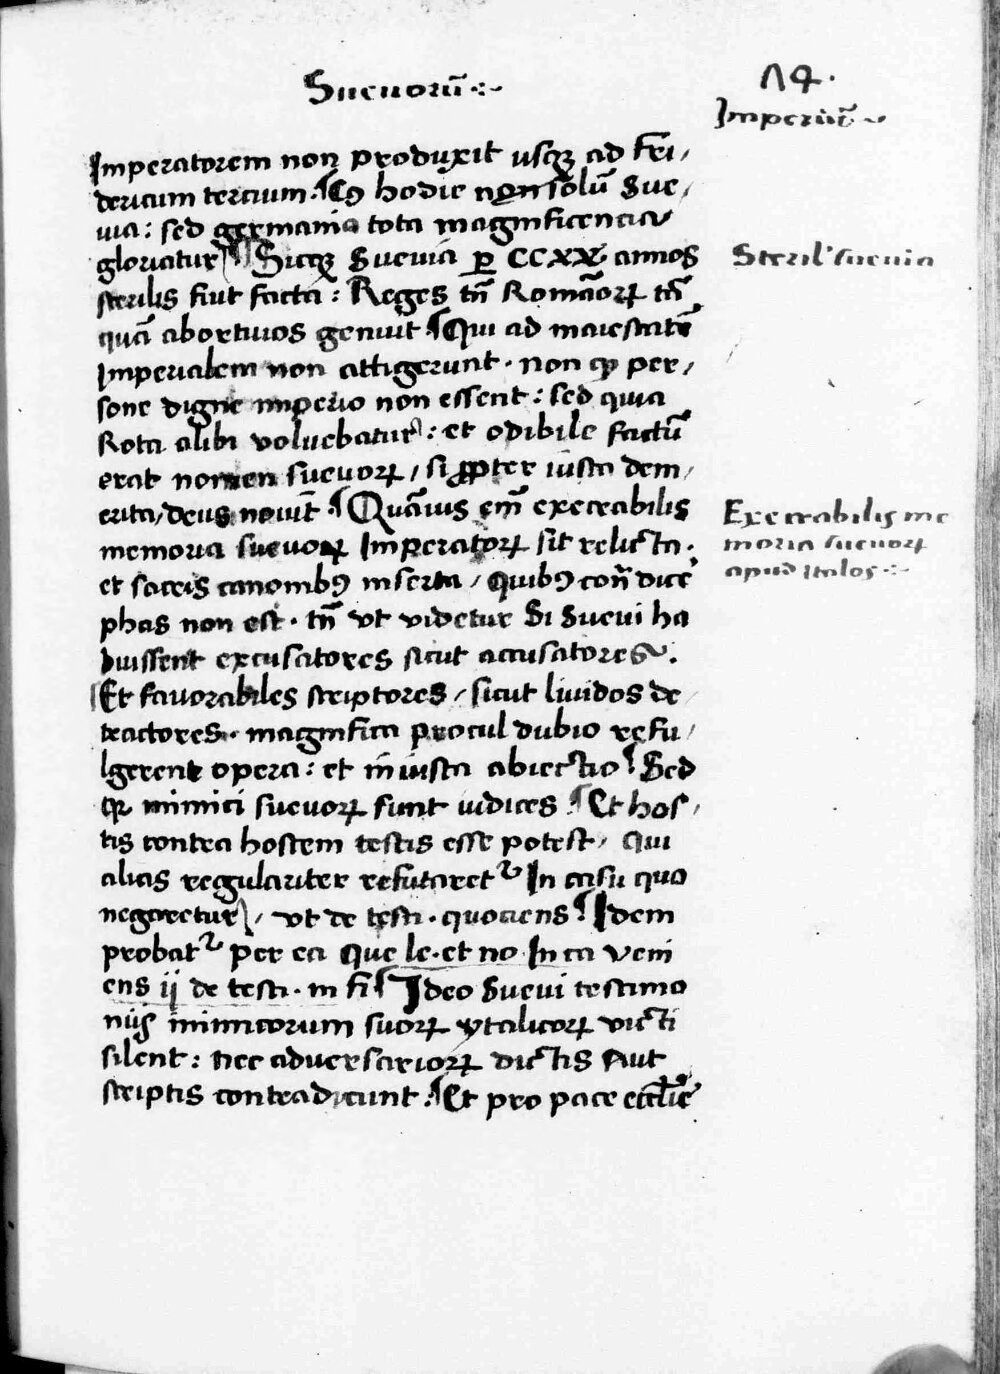 Sueuorū
14.
Imperiū
Imperatorem non produxit usqꝫ ad Fri/
dericum tercium. Cꝰ hodie non solū Sue/
uia: sed germania tota magnificencia
gloriatur Sicqꝫ Sueuia ꝑ CCXX annos
Steril' sueuia
sterilis fiut facta: Reges tn̄ Romāoꝝ tn̄
quā abortiuos genuit Qui ad maiestatē
Imperialem non attigerunt. non ꝙ per/
sone digne imperio non essent: sed quia
Rota alibi voluebatur: et odibile factū
erat nomen sueuoꝝ / si ꝓpter iusta dem/
erita, deus nouit. Quāuis em̄ execrabilis
Execrabilis me
moria sueuoꝝ
apud Italos
memoria sueuoꝝ Imperatoꝝ sit relicta.
et sacris canonibꝰ inserta / quibꝰ con̄dicē
phas non est. tn̄ vt videtur Si Sueui ha
buissent excusatores sicut accusatores.
Et fauorabiles scriptores / sicut liuidos de
tractores. magnifica procul dubio refu/
lgerent opera: et iniusta abiectio Sed
qꝛ inimici sueuoꝝ sunt iudices Et hos/
tis contra hostem testis esse potest, qui
alias regulariter refutaret᷑ In casu quo
negaretur, vt de testi. quociens Idem
probat᷑ per ea que le. et no In ca veni
ens ij de testi. in fi Ideo Sueui testimo
nijs inimicorum suoꝝ ytalicoꝝ victi
silent: nec aduersarioꝝ dictis Aut
scriptis contradicunt. Et pro pace eccl̄ie